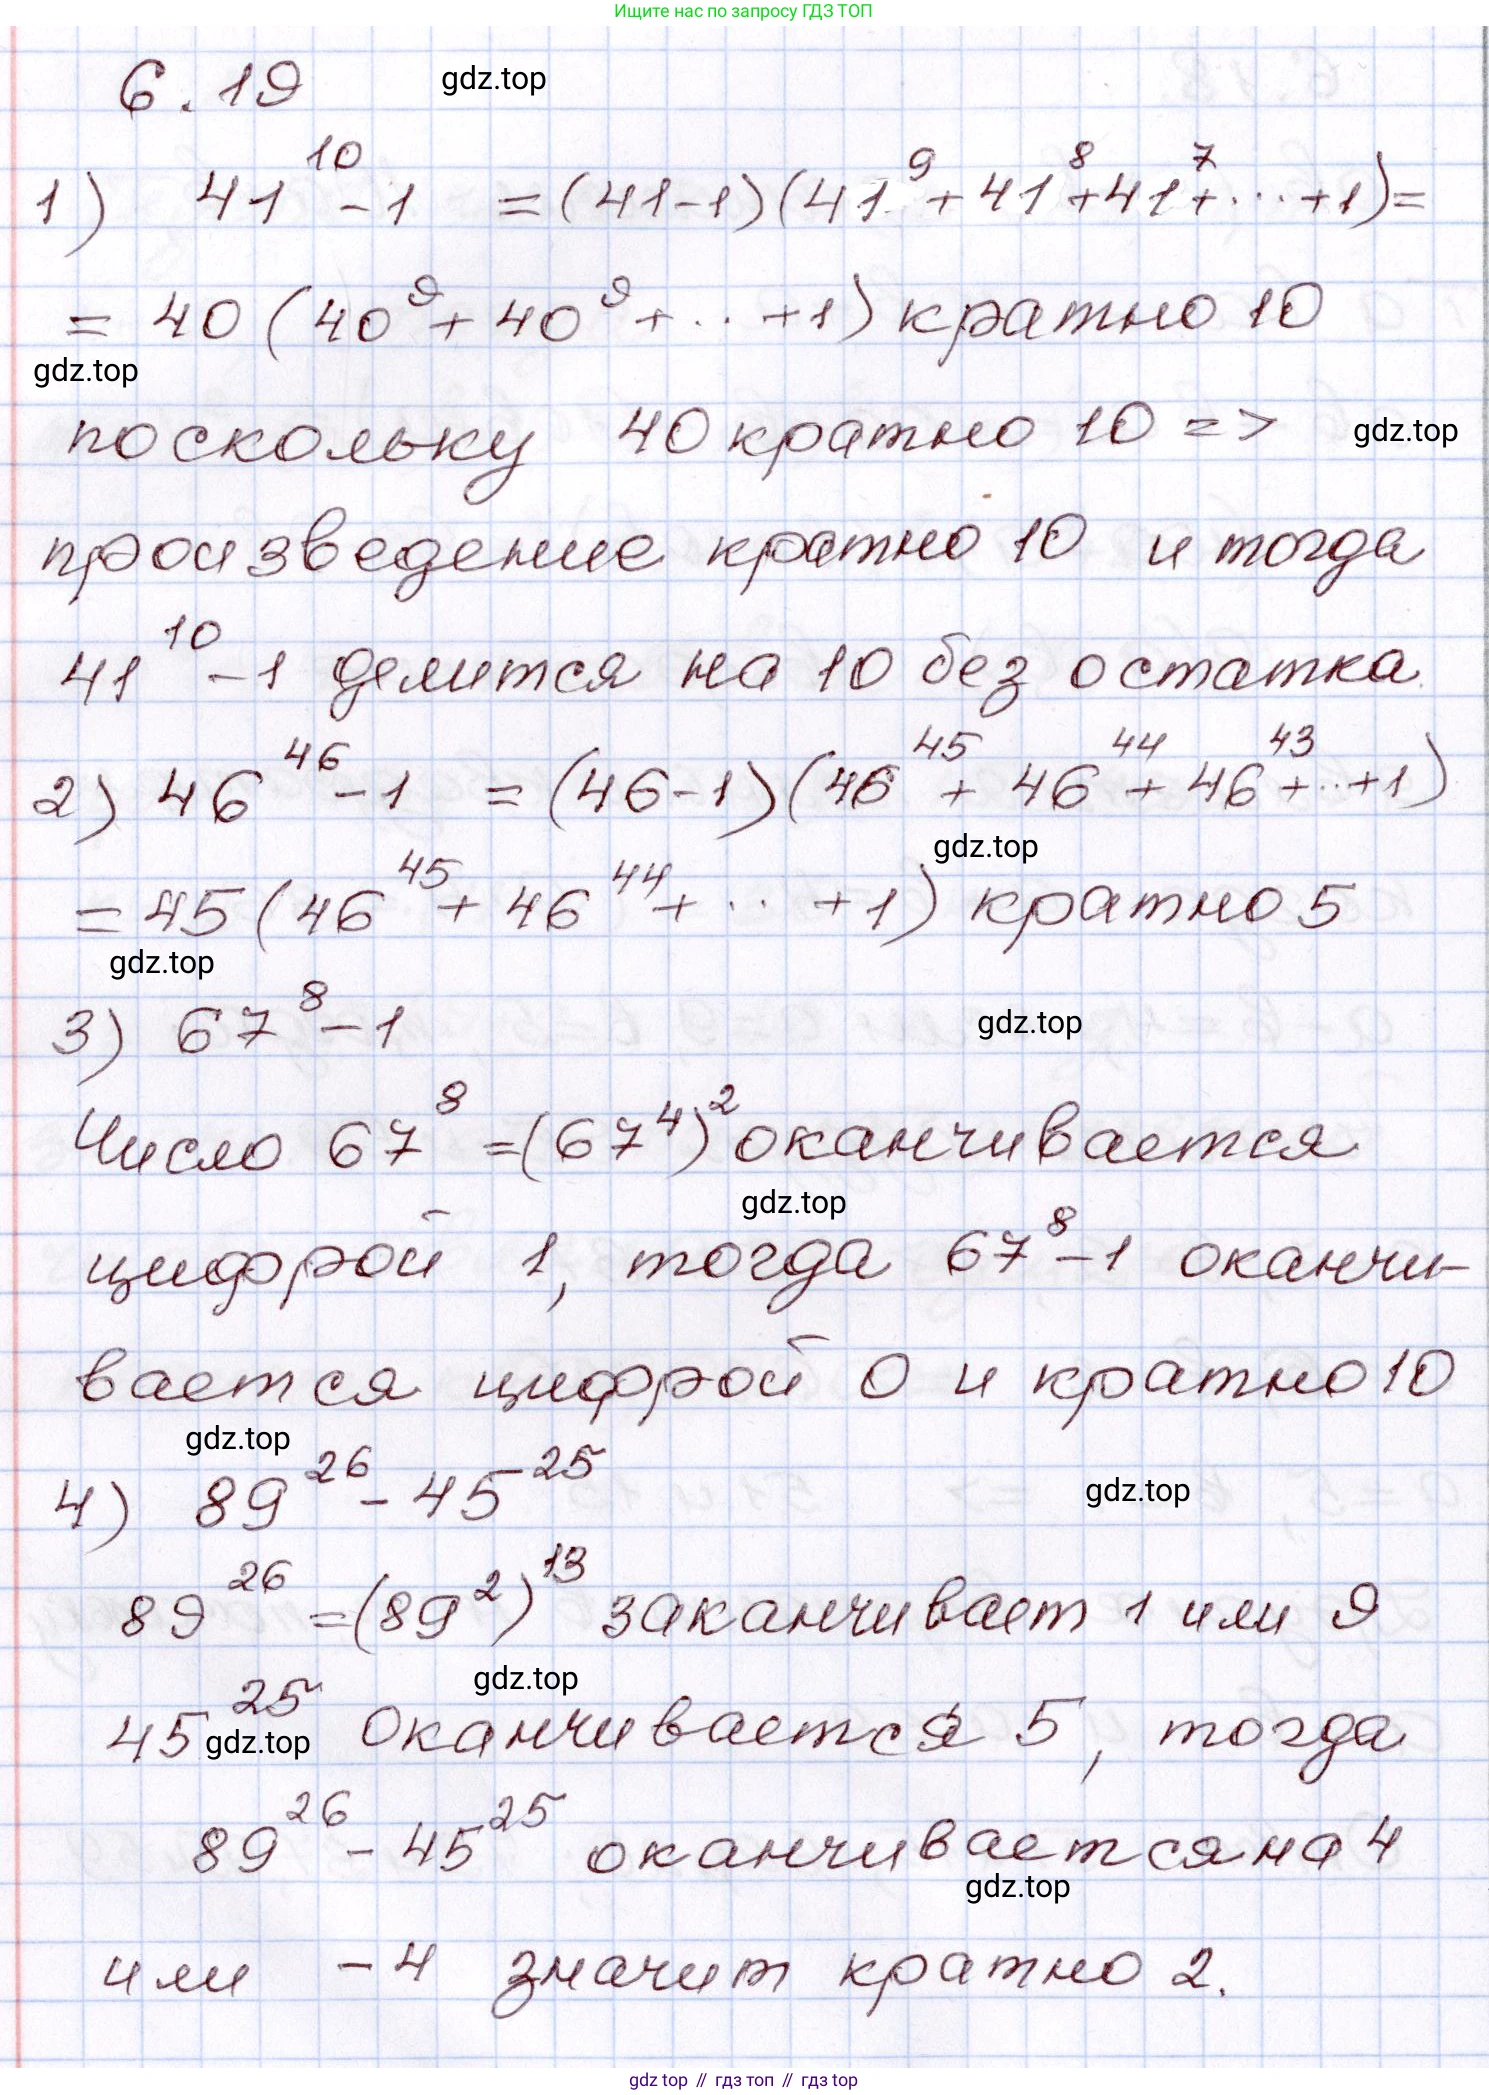 Ищите нас по запросу ГДЗ ТОП
6.19 gdz.top
1) 41^10 - 1 = (41-1)(41^9 + 41^8 + 41^7 + ... + 1) =
= 40 (40^9 + 40^9 + ... + 1) кратно 10
gdz.top
поскольку 40 кратно 10 => gdz.top
произведение кратно 10 и тогда
41^10 - 1 делится на 10 без остатка.
2) 46^46 - 1 = (46-1)(46^45 + 46^44 + 46^43 + ... + 1)
gdz.top
= 45 (46^45 + 46^44 + ... + 1) кратно 5
gdz.top
3) 67^8 - 1 gdz.top
Число 67^8 = (67^4)^2 оканчивается
gdz.top
цифрой 1, тогда 67^8 - 1 оканчи-
вается цифрой 0 и кратно 10
gdz.top
4) 89^26 - 45^25 gdz.top
89^26 = (89^2)^13 заканчивает 1 или 9
gdz.top
45^25 оканчивается 5, тогда
gdz.top
89^26 - 45^25 оканчивается на 4
gdz.top
или -4 значит кратно 2.
gdz top // гдз топ // гдз top